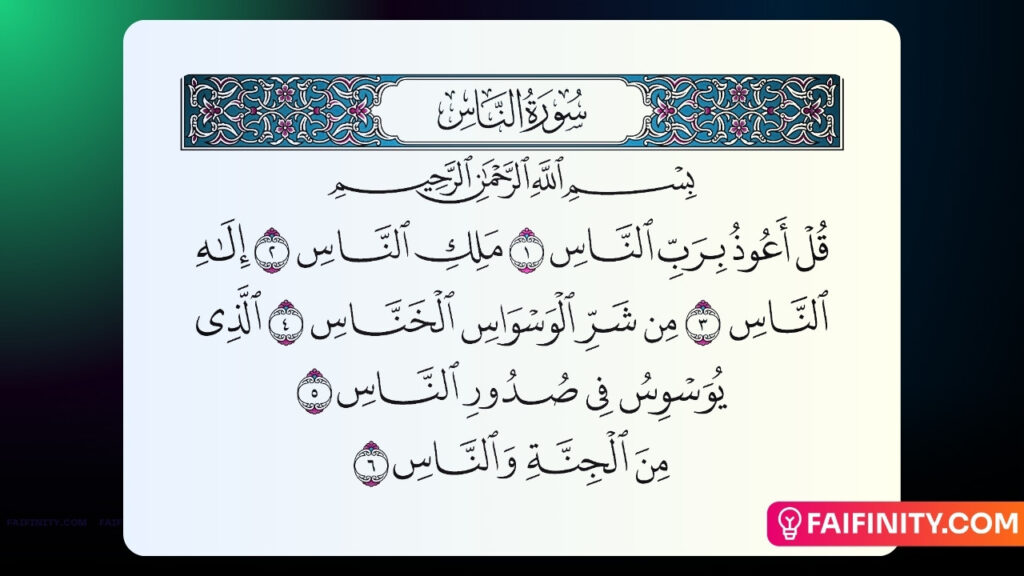 سُورَةُ النَّاسِ
بِسْمِ ٱللَّهِ ٱلرَّحْمَٰنِ ٱلرَّحِيمِ
قُلْ أَعُوذُ بِرَبِّ ٱلنَّاسِ ١ مَلِكِ ٱلنَّاسِ ٢ إِلَٰهِ
ٱلنَّاسِ ٣ مِن شَرِّ ٱلْوَسْوَاسِ ٱلْخَنَّاسِ ٤ ٱلَّذِى
يُوَسْوِسُ فِى صُدُورِ ٱلنَّاسِ ٥
مِنَ ٱلْجِنَّةِ وَٱلنَّاسِ ٦
FAIFINITY.COM FAIF
FAIFINITY.COM